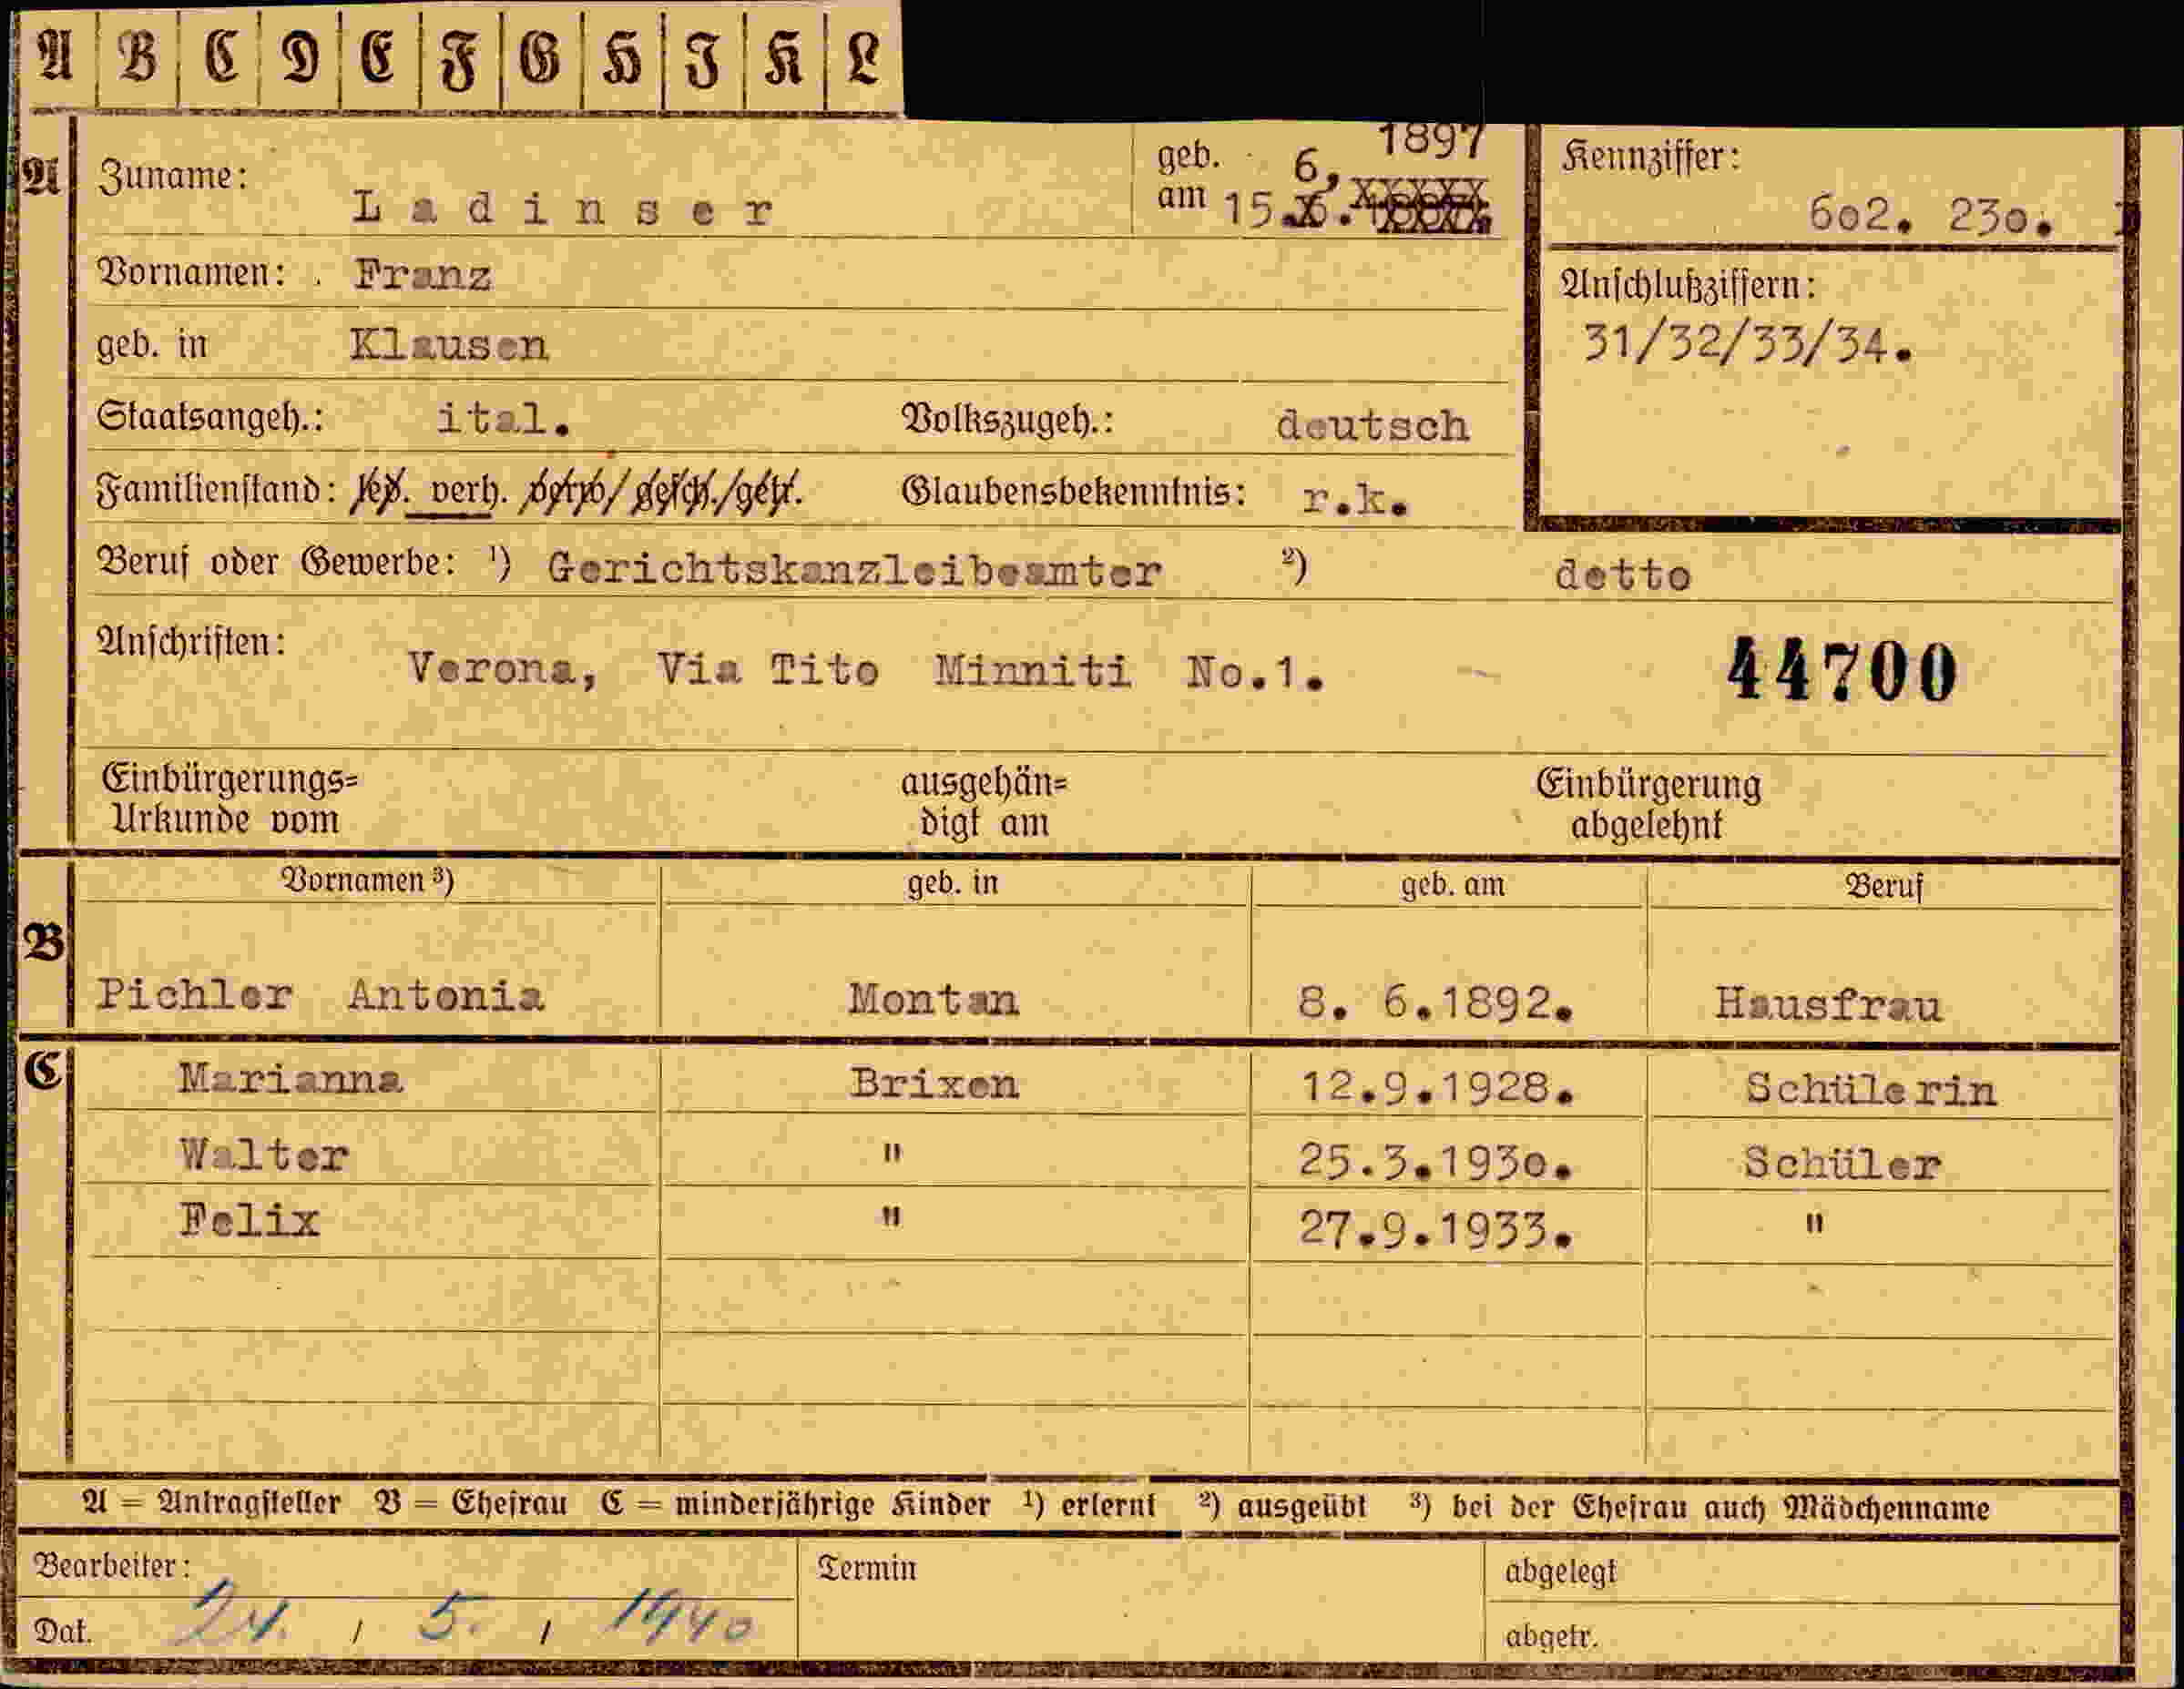 A B C D E F G H I K L
A Zuname: Ladinser geb. am 15. 6, 1897
Kennziffer: 602. 230.
Vornamen: Franz
geb. in Klausen
Anschlußziffern: 31/32/33/34.
Staatsangeh.: ital. Volkszugeh.: deutsch
Familienstand: led. verh. verw/ gesch./getr. Glaubensbekenntnis: r.k.
Beruf oder Gewerbe: ¹) Gerichtskanzleibeamter ²) detto
Anschriften: Verona, Via Tito Minniti No.1. 44700
Einbürgerungs= ausgehän= Einbürgerung
Urkunde vom digt am abgelehnt
Vornamen ³) geb. in geb. am Beruf
B
Pichler Antonia Montan 8. 6.1892. Hausfrau
C Marianna Brixen 12.9.1928. Schülerin
Walter " 25.3.1930. Schüler
Felix " 27.9.1933. "
A = Antragsteller B = Ehefrau C = minderjährige Kinder ¹) erlernt ²) ausgeübt ³) bei der Ehefrau auch Mädchenname
Bearbeiter: Termin abgelegt
Dat. 24. / 5. / 1940 abgetr.